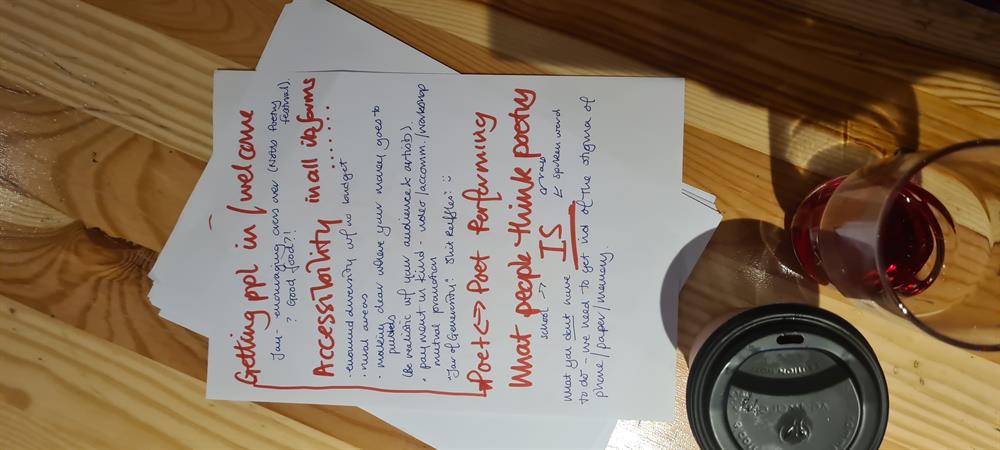 Getting ppl in / welcome
Jay - encouraging cross over (Notts Poetry
festival).
? Good food?!
Accessibility in all its forms
- around diversity w/ no budget
• rural areas
• making clear where your money goes to
punters
(be realistic w/ your audience & artists).
• payment in kind - video/accomm./workshop
mutual promotion
"Jar of Generosity! Shit Raffles! ☺
#Poet <-> Poet Performing
What people think poetry
school → IS ← rap
← spoken word
what you don't have
to do - we need to get rid of the stigma of
phone/paper/memory.